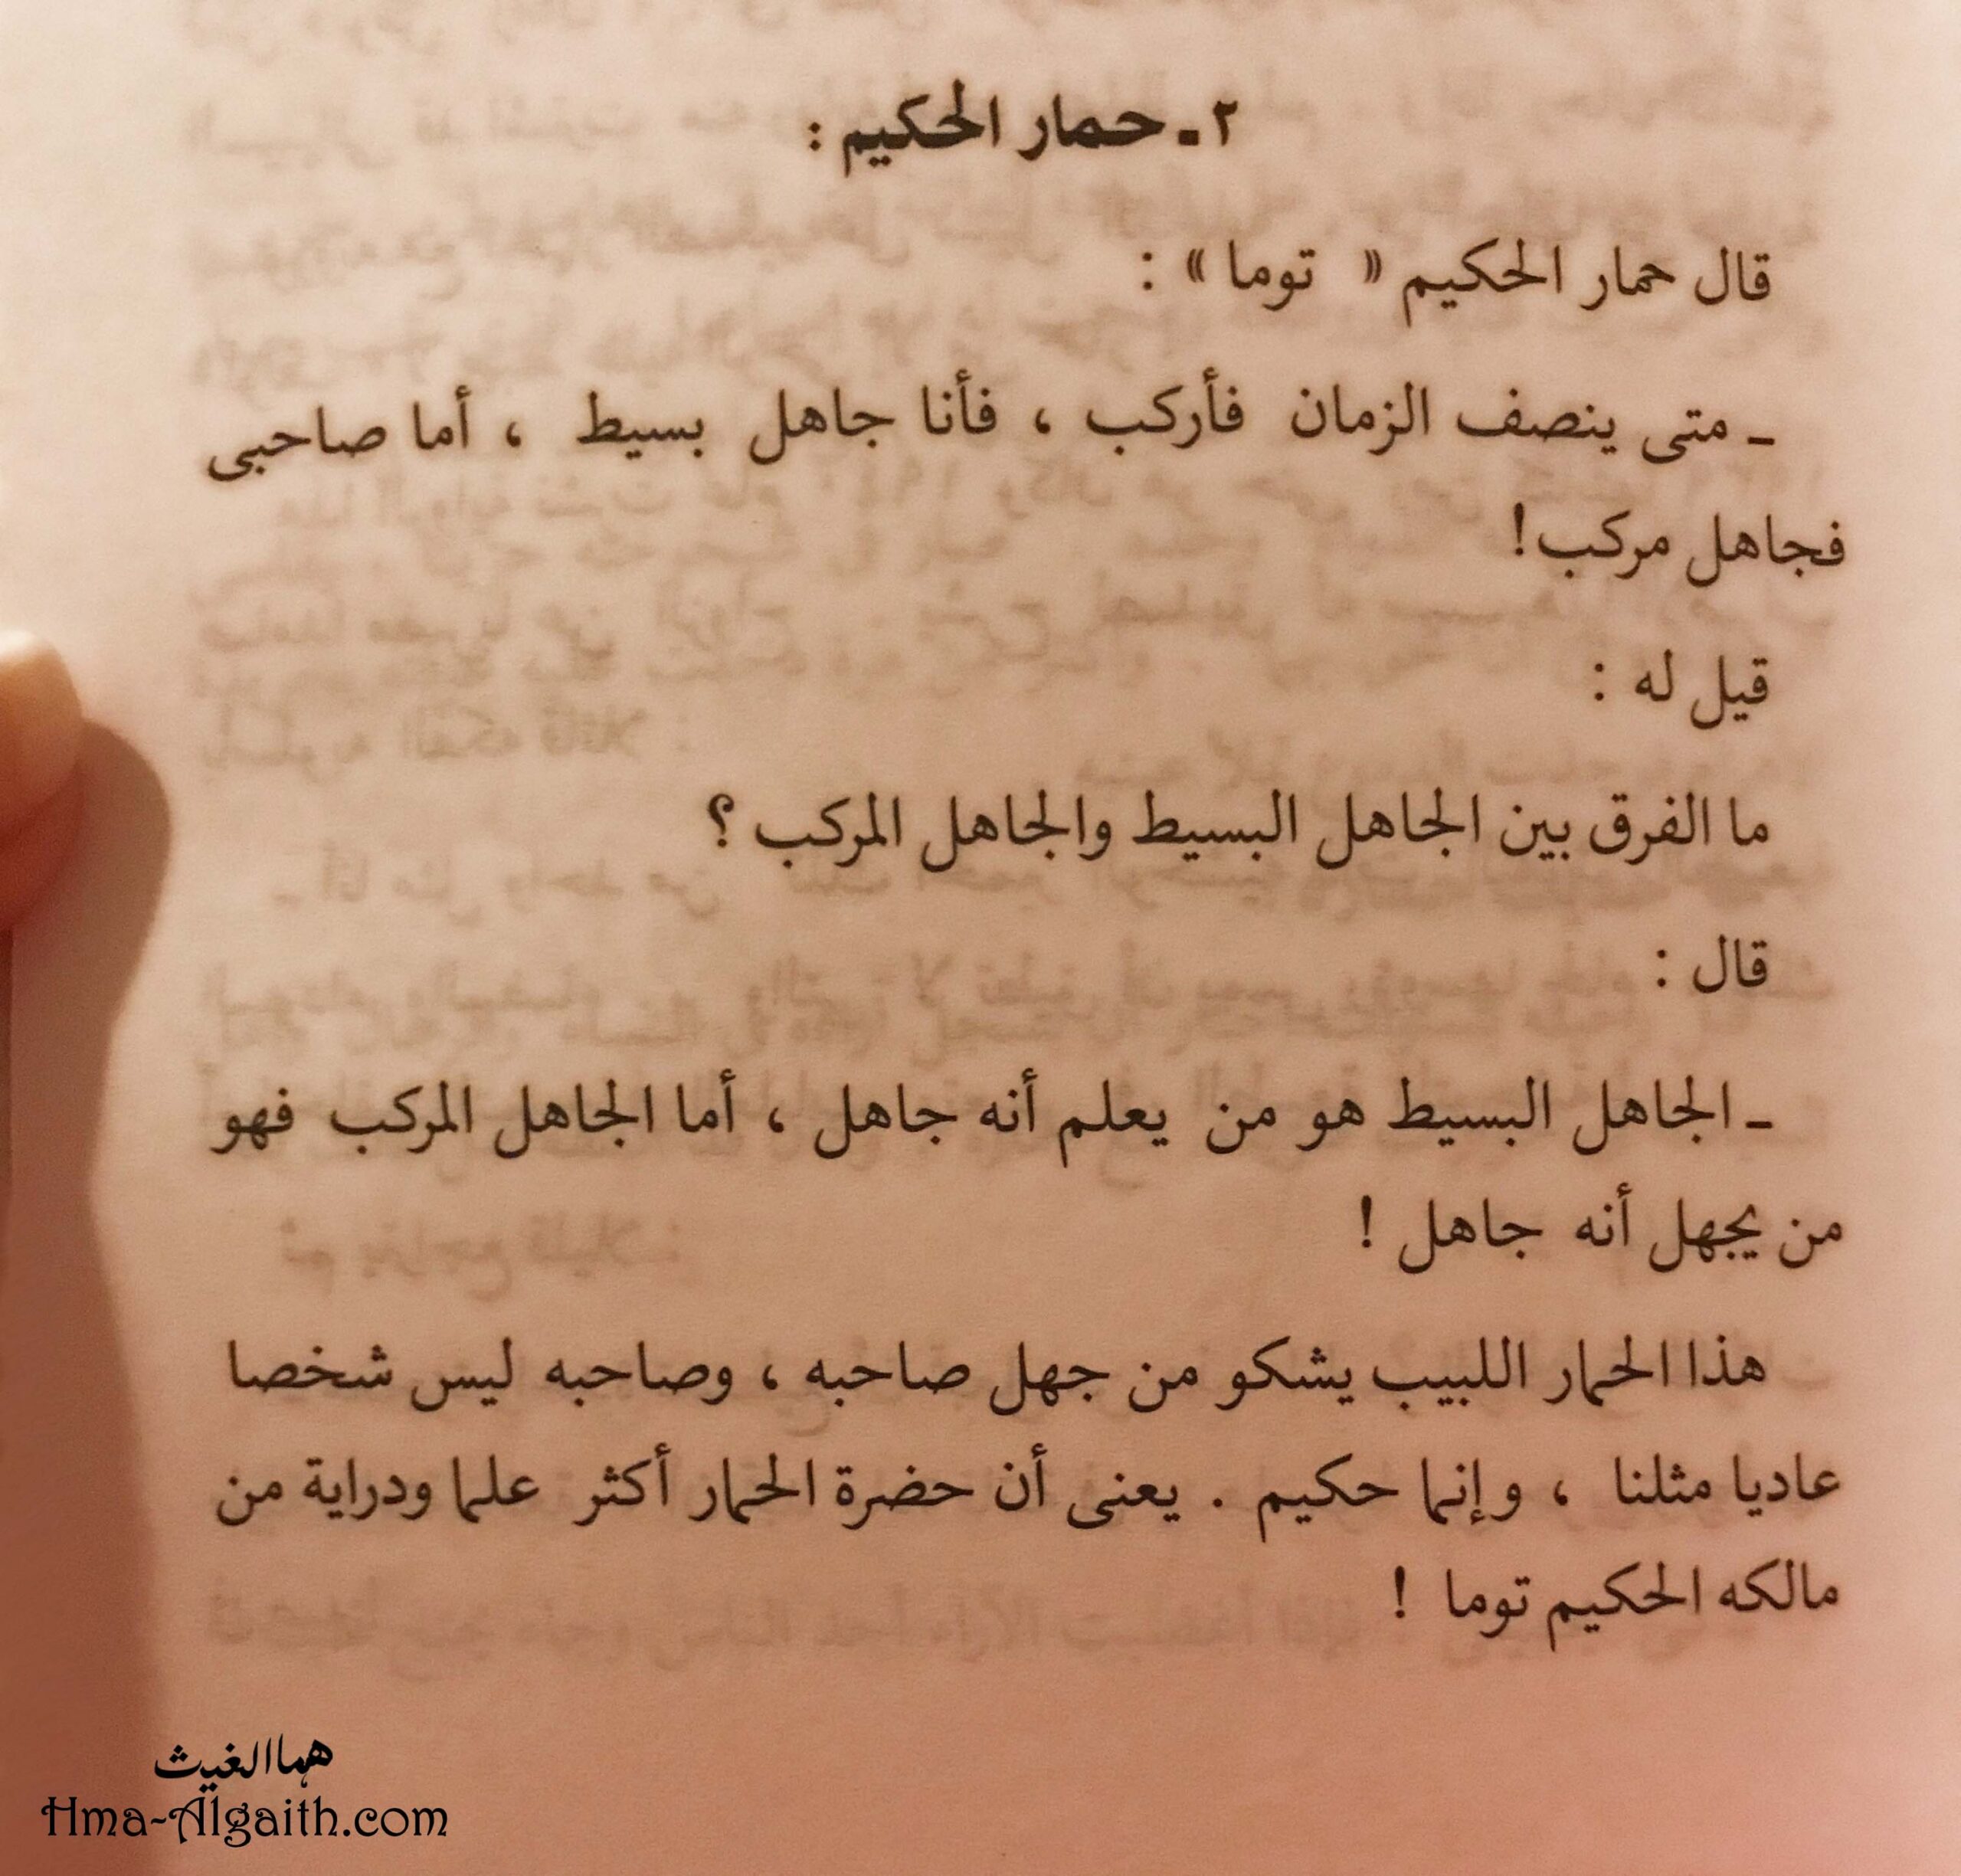 ٢ ـ حمار الحكيم :
قال حمار الحكيم « توما » :
ـ متى ينصف الزمان فأركب ، فأنا جاهل بسيط ، أما صاحبى
فجاهل مركب!
قيل له :
ما الفرق بين الجاهل البسيط والجاهل المركب ؟
قال :
ـ الجاهل البسيط هو من يعلم أنه جاهل ، أما الجاهل المركب فهو
من يجهل أنه جاهل !
هذا الحمار اللبيب يشكو من جهل صاحبه ، وصاحبه ليس شخصا
عاديا مثلنا ، وإنما حكيم . يعنى أن حضرة الحمار أكثر علما ودراية من
مالكه الحكيم توما !
هما الغيث
Hma-Algaith.com